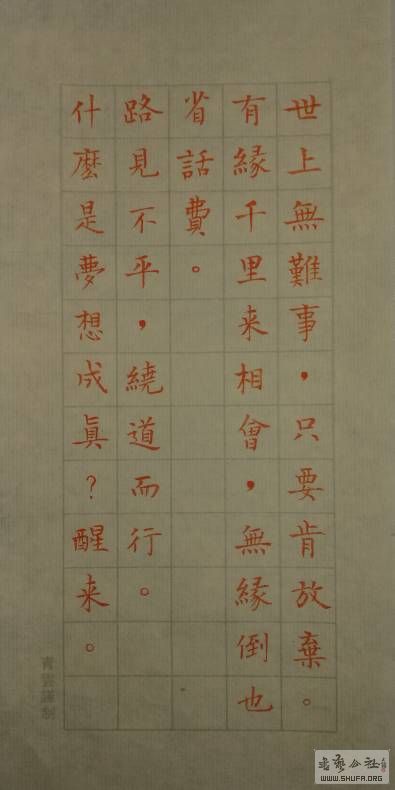 世上無難事，只要肯放棄。
有緣千里来相會，無緣倒也
省話費。
路見不平，繞道而行。
什麼是夢想成眞？醒来。
青雲謹制
書藝公社
WWW.SHUFA.ORG